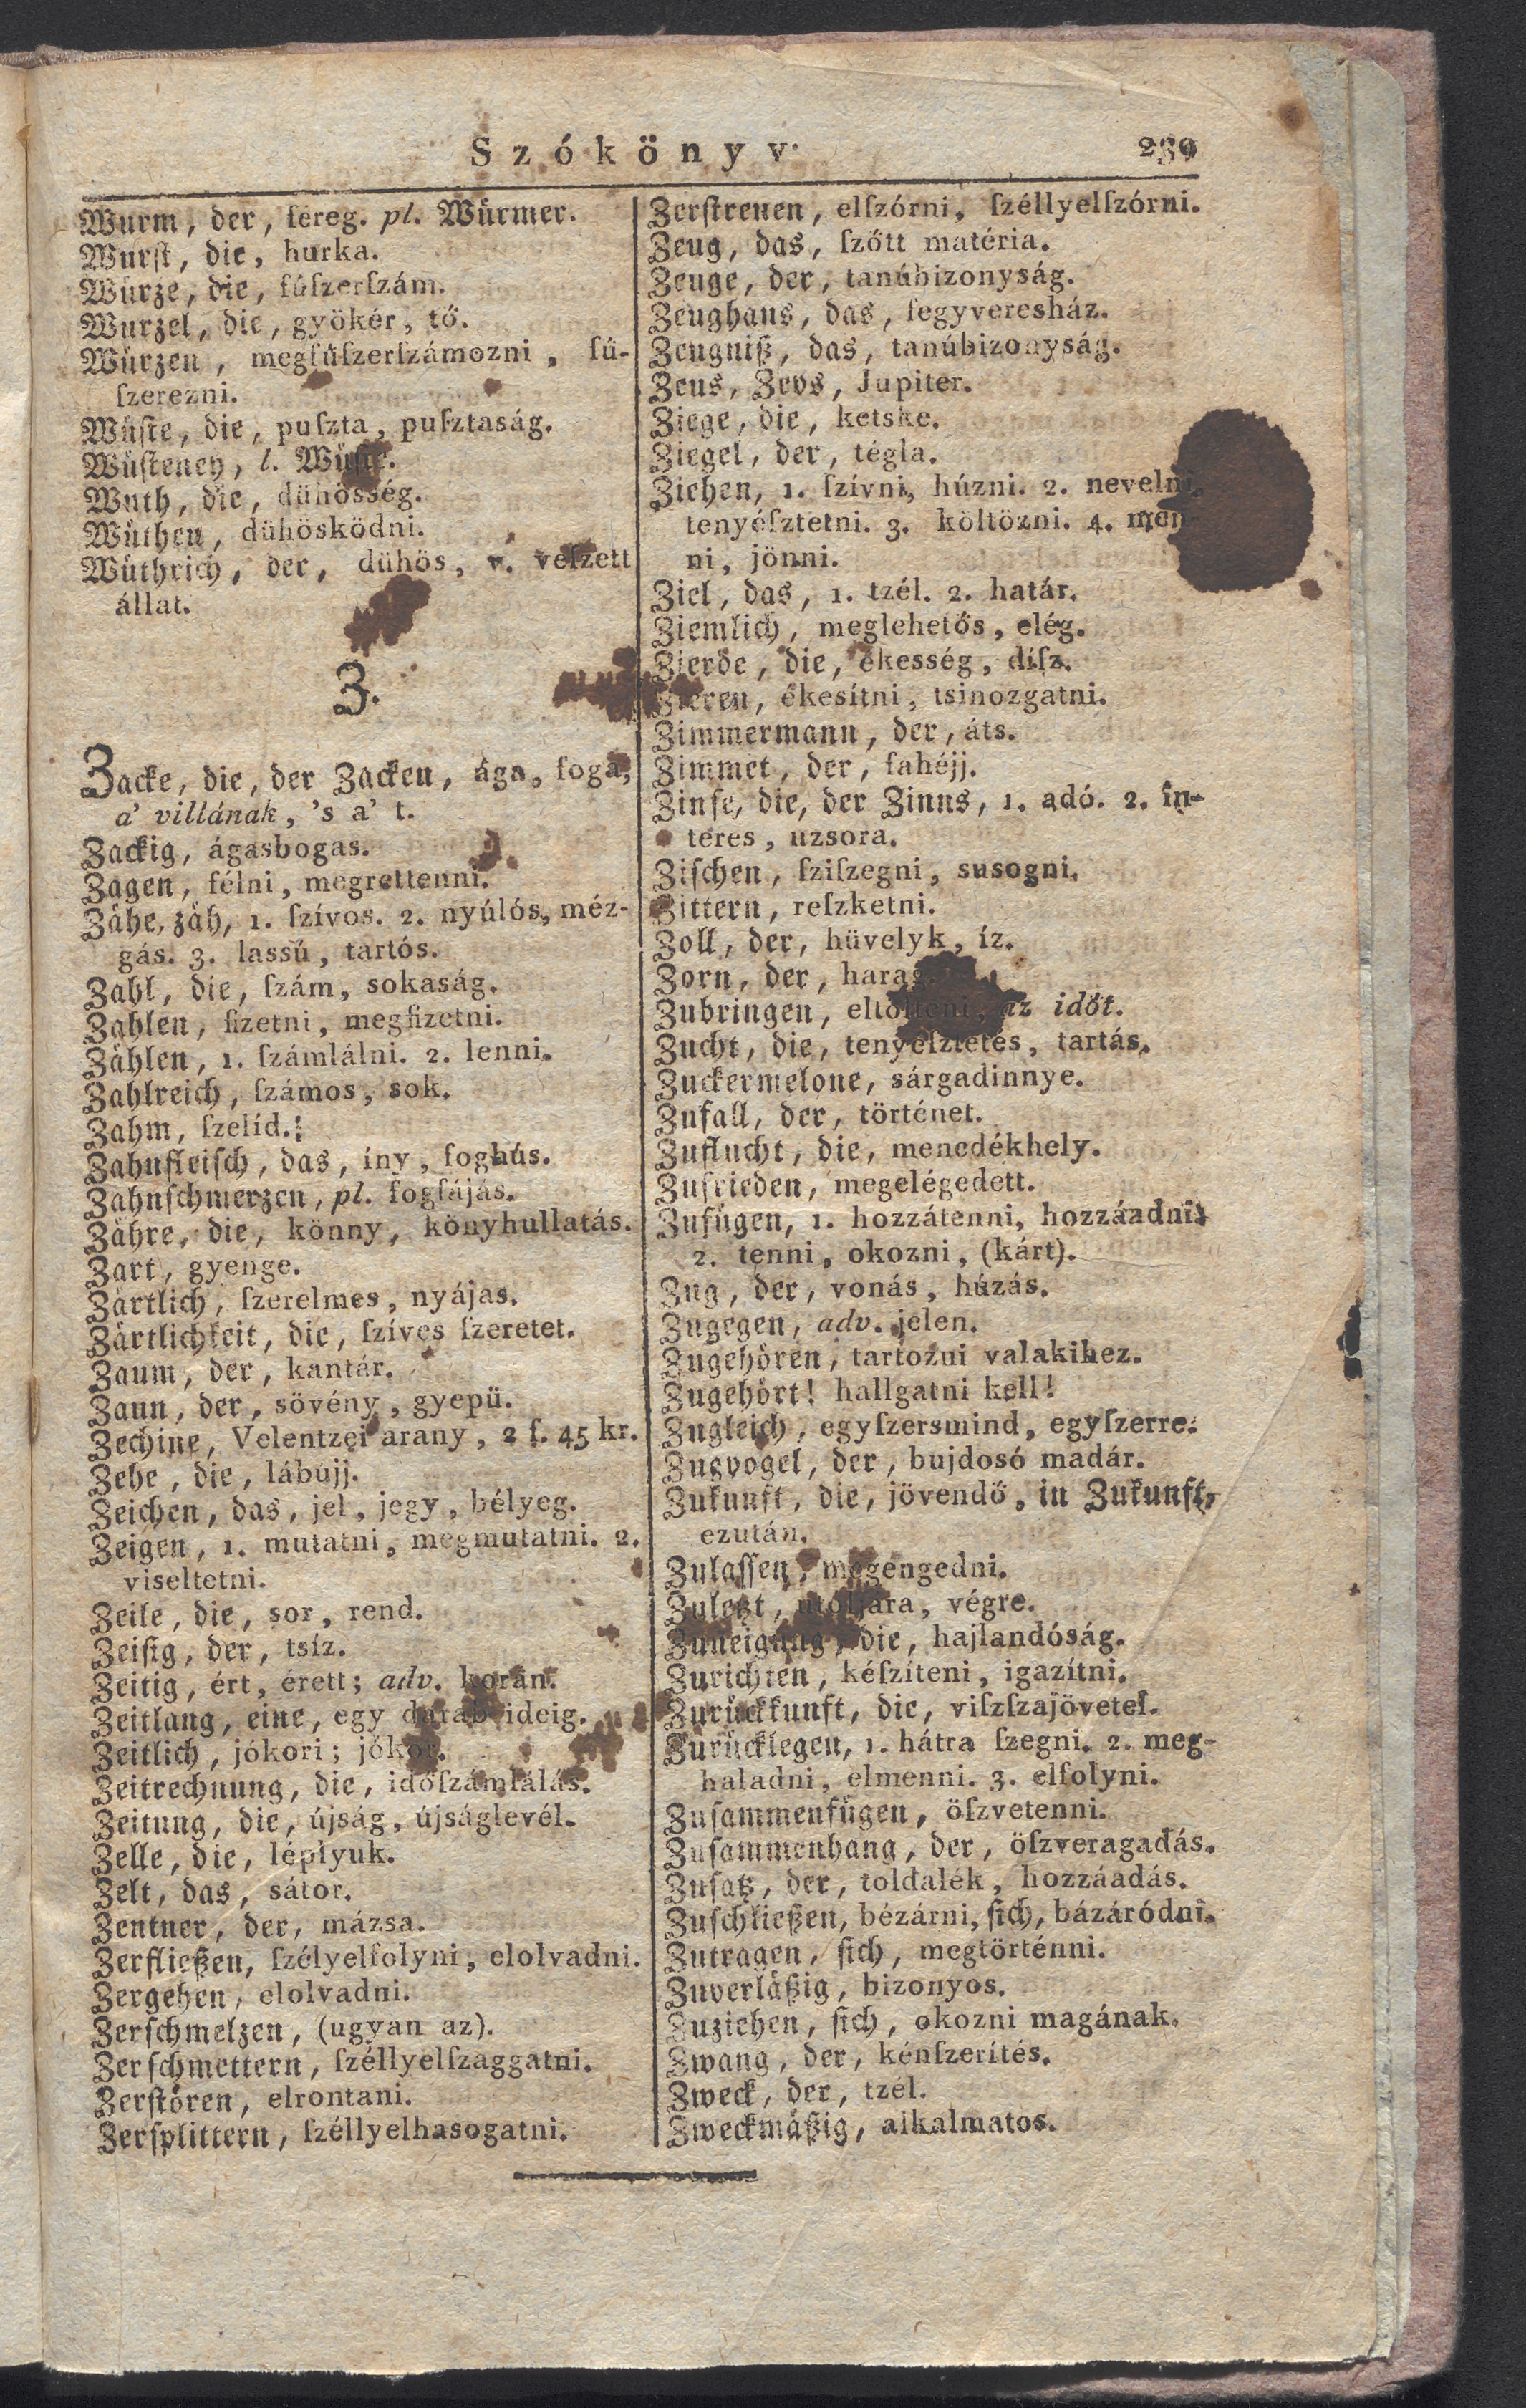 Szókönyv.
239
Wurm, der, féreg. pl. Würmer.
Wurst, die, hurka.
Würze, die, fűſzerſzám.
Wurzel, die, gyökér, tő.
Würzen, megfűſzerſzámozni, fű-
ſzerezni.
Wüſte, die, puſzta, puſztaság.
Wüſteney, l. Wüſte.
Wuth, die, dühösség.
Wüthen, dühösködni.
Wüthrich, der, dühös, v. veſzett
állat.
Z.
Zacke, die, der Zacken, ága, foga,
a' villának, 's a' t.
Zackig, ágasbogas.
Zagen, félni, megrettenni.
Zähe, zäh, 1. ſzívos. 2. nyúlós, méz-
gás. 3. lassú, tartós.
Zahl, die, ſzám, sokaság.
Zahlen, fizetni, megfizetni.
Zählen, 1. ſzámlálni. 2. lenni.
Zahlreich, ſzámos, sok.
Zahm, ſzelíd.
Zahnfleiſch, das, íny, foghús.
Zahnſchmerzen, pl. fogfájás.
Zähre, die, könny, könyhullatás.
Zart, gyenge.
Zärtlich, ſzerelmes, nyájas.
Zärtlichkeit, die, ſzíves ſzeretet.
Zaum, der, kantár.
Zaun, der, sövény, gyepü.
Zechine, Velentzei arany, 2 f. 45 kr.
Zehe, die, lábujj.
Zeichen, das, jel, jegy, bélyeg.
Zeigen, 1. mutatni, megmutatni. 2.
viseltetni.
Zeile, die, sor, rend.
Zeiſig, der, tsíz.
Zeitig, ért, érett; adv. korán.
Zeitlang, eine, egy darab ideig.
Zeitlich, jókori; jókor.
Zeitrechnung, die, időſzámlálás.
Zeitung, die, újság, újságlevél.
Zelle, die, léplyuk.
Zelt, das, sátor.
Zentner, der, mázsa.
Zerfließen, ſzélyelfolyni, elolvadni.
Zergehen, elolvadni.
Zerſchmelzen, (ugyan az).
Zerſchmettern, ſzéllyelſzaggatni.
Zerſtören, elrontani.
Zerſplittern, ſzéllyelhasogatni.
Zerſtreuen, elſzórni, ſzéllyelſzórni.
Zeug, das, ſzőtt matéria.
Zeuge, der, tanúbizonyság.
Zeughaus, das, fegyveresház.
Zeugniß, das, tanúbizonyság.
Zeus, Zevs, Jupiter.
Ziege, die, ketske.
Ziegel, der, tégla.
Ziehen, 1. ſzívni, húzni. 2. nevelni,
tenyéſztetni. 3. költözni. 4. men-
ni, jönni.
Ziel, das, 1. tzél. 2. határ.
Ziemlich, meglehetős, elég.
Zierde, die, ékesség, díſz.
Zieren, ékesítni, tsinozgatni.
Zimmermann, der, áts.
Zimmet, der, fahéjj.
Zinſe, die, der Zinns, 1. adó. 2. in-
teres, uzsora.
Ziſchen, ſziſzegni, susogni.
Zittern, reſzketni.
Zoll, der, hüvelyk, íz.
Zorn, der, harag.
Zubringen, eltölteni, az időt.
Zucht, die, tenyéſztetés, tartás.
Zuckermelone, sárgadinnye.
Zufall, der, történet.
Zuflucht, die, menedékhely.
Zufrieden, megelégedett.
Zufügen, 1. hozzátenni, hozzáadni.
2. tenni, okozni, (kárt).
Zug, der, vonás, húzás.
Zugegen, adv. jelen.
Zugehören, tartozni valakihez.
Zugehört! hallgatni kell!
Zugleich, egyſzersmind, egyſzerre.
Zugvogel, der, bujdosó madár.
Zukunft, die, jövendő, in Zukunft,
ezután.
Zulaſſen, megengedni.
Zuletzt, utoljára, végre.
Zuneigung, die, hajlandóság.
Zurichten, kéſzíteni, igazítni.
Zurückkunft, die, viſzſzajövetel.
Zurücklegen, 1. hátra ſzegni. 2. meg-
haladni, elmenni. 3. elfolyni.
Zuſammenfügen, öſzvetenni.
Zuſammenhang, der, öſzveragadás.
Zuſatz, der, toldalék, hozzáadás.
Zuſchließen, bézárni, ſich, bázáródni.
Zutragen, ſich, megtörténni.
Zuverläßig, bizonyos.
Zuziehen, ſich, okozni magának.
Zwang, der, kénſzerítés.
Zweck, der, tzél.
Zweckmäßig, alkalmatos.